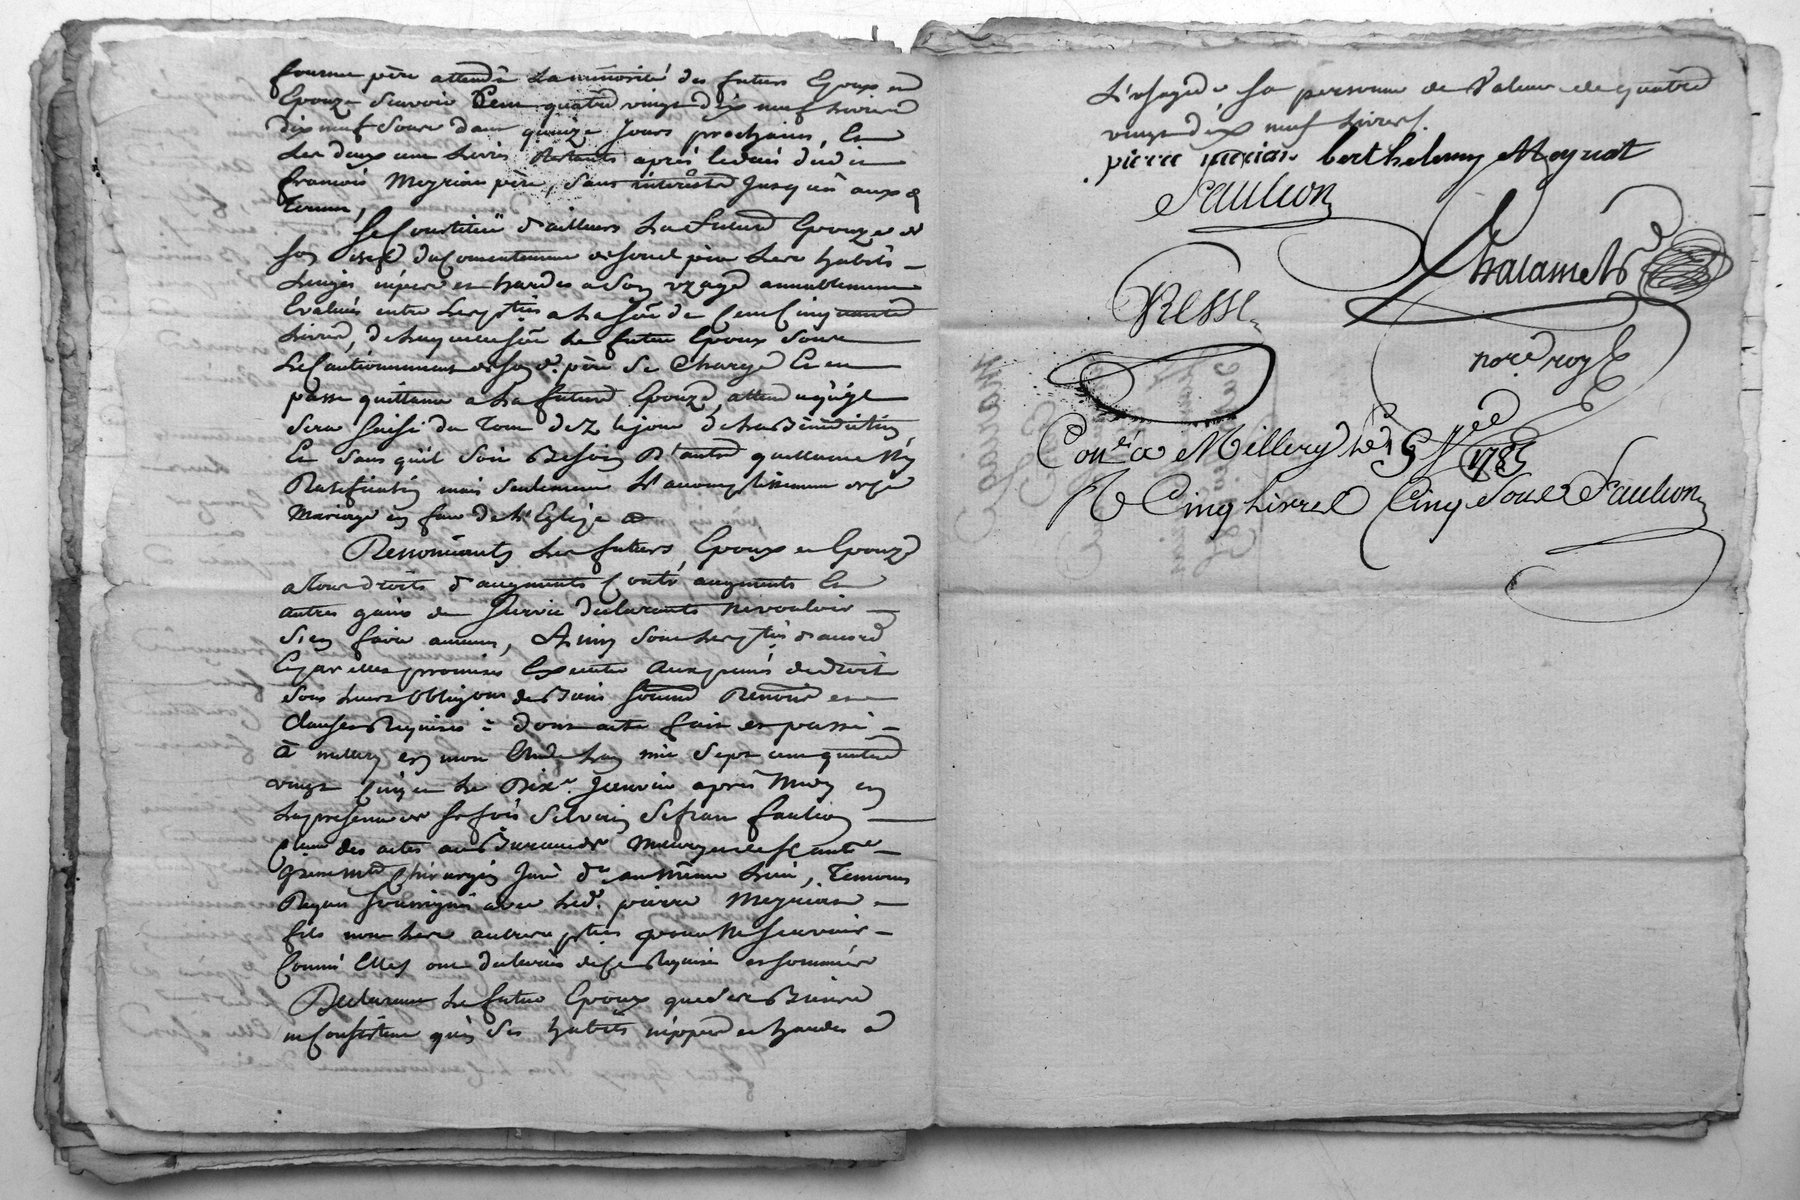 père attendu la minorité des futurs Epoux et
Epouze Scavoir Cent quatre vingt dix neuf livres
dix neuf Sous dans quinze Jours prochains, Et
les deux cent livres Restants après le décès dudit
françois Meyrian père, Sans intérêts Jusqu'aux
termes,
Se Constitüe d'ailleurs La future Epouze de
Son du Consentement de son père Ses habits
linges nipes et hardes a Son uzage annablement
Evalués entre les parties a la so͂e de Cent Cinquante
livres, de laquelle so͂e le futur Epoux Sous
Le Cautionnement de son d. père Se Charge Et en
passe quittance a La future Epouze, attendu qu'il
Sera Saisi du Tout dez le jour de la Bénédiction
Et Sans qu'il Soit Besoin D'autre quittance Ny
Ratification mais Seulement L'accomplissement de ce
Mariage en face de L'Eglise
Renonçants Les futurs Epoux et Epouze
a tous droits d'augments Contr'augments Et
autres gains de Survie déclarants ne vouloir
S'en faire aucuns, Ainsi Sont Les parties d'accord
Et par elles promis Exécuter aux peines de droit
Sous leurs Obligons de Biens Soumd Renond et
Clauses Requises : dont acte fait et passé
à millery en mon Etude L'an mil Sept cent quatre
vingt Cinq et Le Dixe. Janvier après Midy en
La présence de Sr Silvain faulion
Com̃ des actes au Bureau de
Chirurgien Juré dt au même Lieu, Temoins
Requis Soussignés avec Led. pierre Meyrian
fils non Les autres pties. pour ne Scavoir
Comme Elles ont déclarés de ce Requises et sommées
Déclarant Le futur Epoux que Ses Biens
ne Consistent qu'en Ses habits nippes et hardes à
L'usage de Sa personne de Valeur de quatre
vingt dix neuf Livres.
pierre merian berthelemy Meynat
Faulion
Chalamel
Resse
nore. royl
Conlé a Millery Le 1785
R Cinq Livres Cinq Sous Faulion